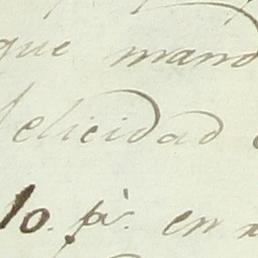 que mand
felicidad
lo. pr. en